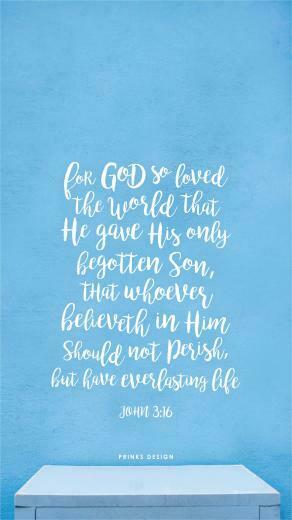 for GOD so loved
the world that
He gave His only
begotten Son,
tHat whoever
believeth in Him
Should not Perish,
but have everlasting life
JOHN 3:16
PRINKS DESIGN